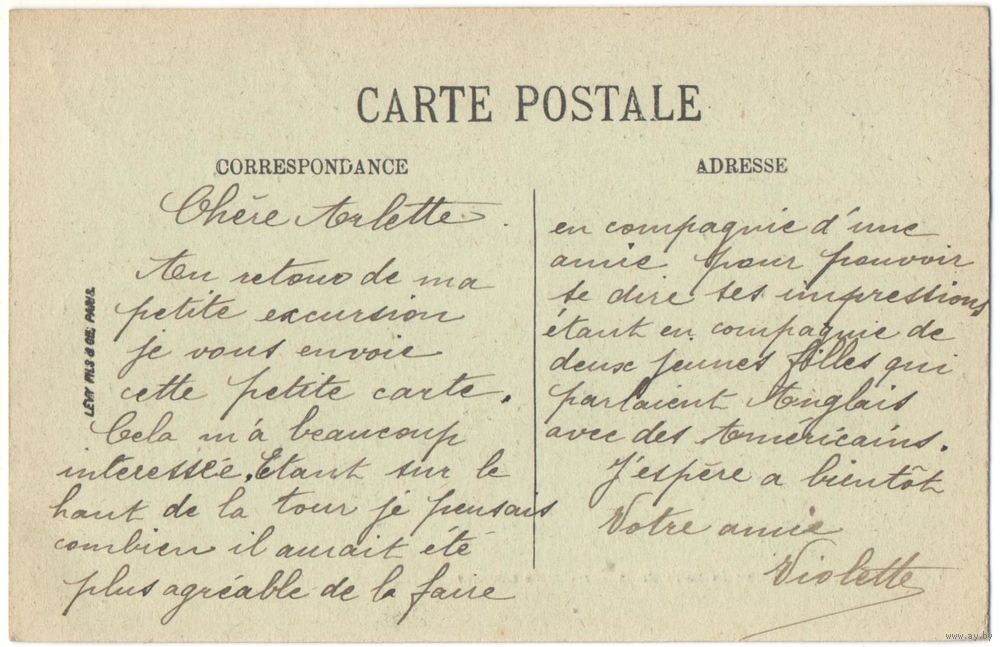 CARTE POSTALE
CORRESPONDANCE
Chère Arlette.
Au retour de ma
petite excursion
je vous envoie
cette petite carte.
Cela m'a beaucoup
interessée. Etant sur le
haut de la tour je pensais
combien il aurait été
plus agréable de la faire
ADRESSE
en compagnie d'une
amie pour pouvoir
se dire ses impressions
étant en compagnie de
deux jeunes filles qui
parlaient Anglais
avec des Américains.
J'espère a bientôt
Votre amie
Violette
LEVY FILS & CIE, PARIS.
www.ay.by